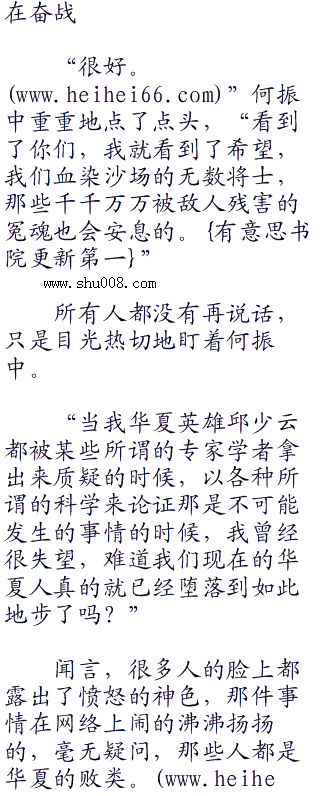 在奋战
“很好。
(www.heihei66.com)”何振
中重重地点了点头，“看到
了你们，我就看到了希望，
我们血染沙场的无数将士，
那些千千万万被敌人残害的
冤魂也会安息的。{有意思书
院更新第一}”
www.shu008.com
所有人都没有再说话，
只是目光热切地盯着何振
中。
“当我华夏英雄邱少云
都被某些所谓的专家学者拿
出来质疑的时候，以各种所
谓的科学来论证那是不可能
发生的事情的时候，我曾经
很失望，难道我们现在的华
夏人真的就已经堕落到如此
地步了吗？”
闻言，很多人的脸上都
露出了愤怒的神色，那件事
情在网络上闹的沸沸扬扬
的，毫无疑问，那些人都是
华夏的败类。(www.heihe